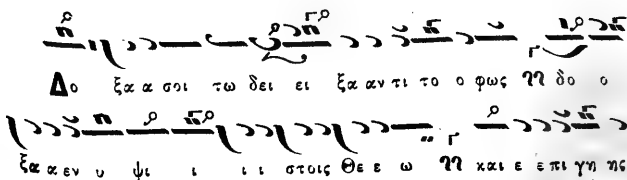 Δο ξα α σοι τω δει ει ξα αν τι το ο φως δο ο
ξα α εν υ ψι ι ι ι στοις Θε ε ω και ε ε πι γη ης